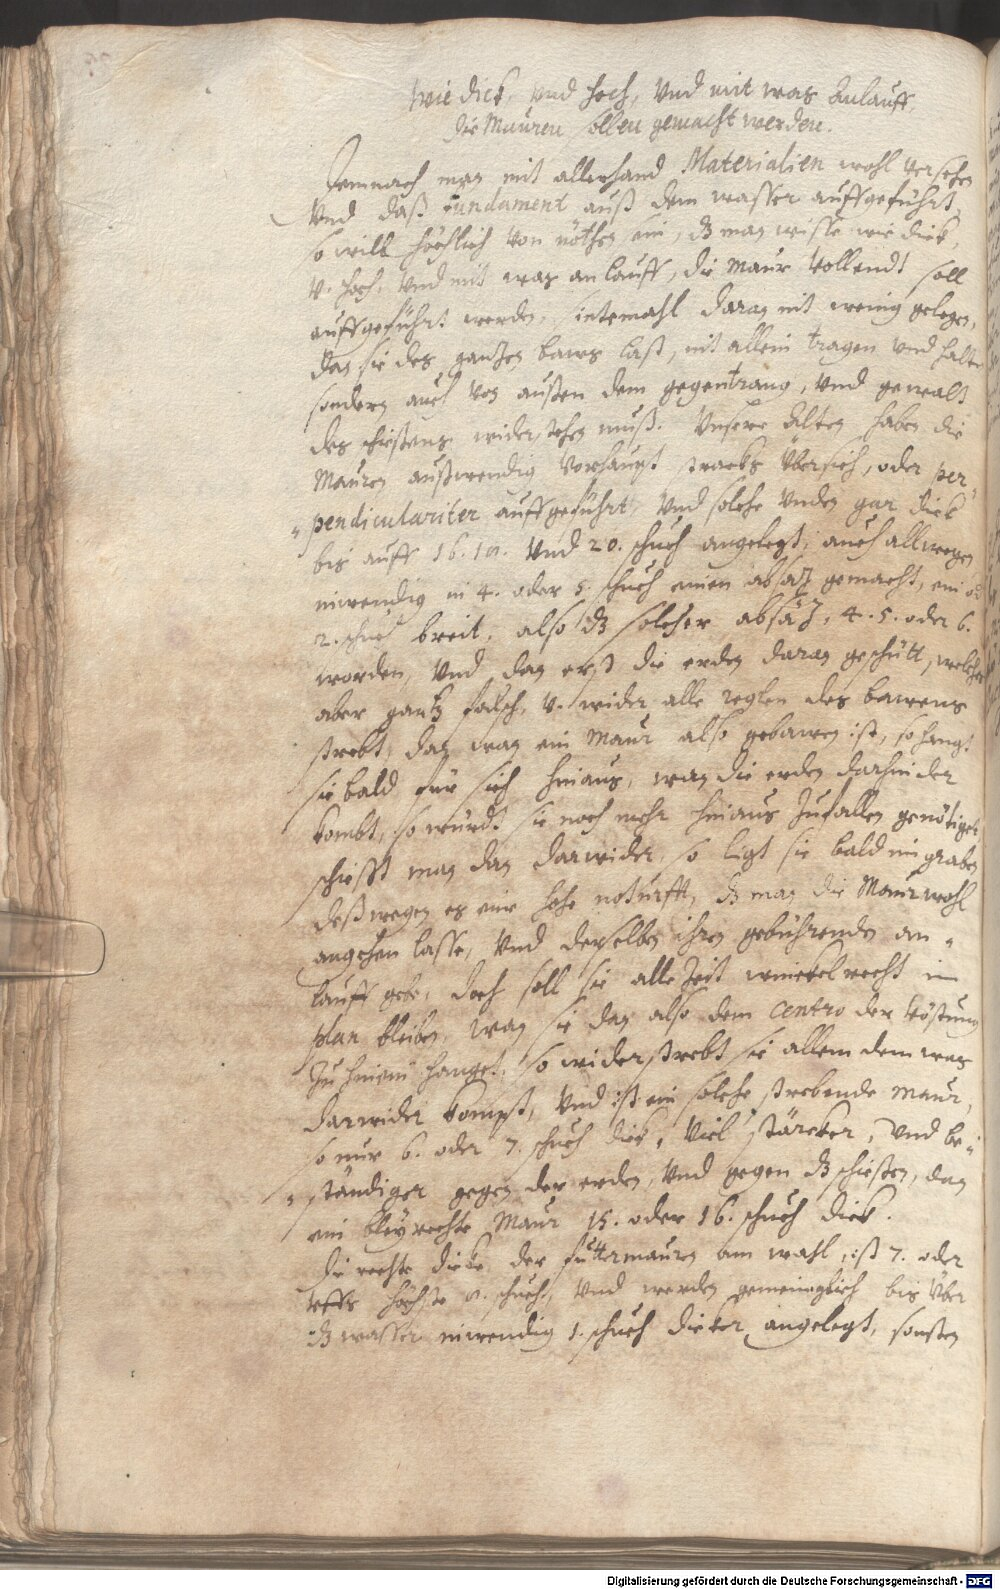 Wie dick, vnd hoch, Vnd mit was Anlauff,
die Mauren sollen gemacht werden.
Demnach man mit allerhand Materialien wohl versehen
Vnd daß fundament auß dem wasser auffgeführt,
so will höchlich von nöthen sein, dz man wisse wie dick,
v. hoch, Vnd mit was anlauff, die Maur vollendt soll
auffgeführt werden, sintemahl daran nit wenig gelegen,
dan sie des gantzen baws last, nit allein tragen vnd halten
sondern auch von außen dem gegentrang, Vnd gewalt
des schießens widerstehen muß. Vnsere Alten haben die
Mauren außwendig vorhaupt stracks Übersich, oder per„
„pendiculariter auffgeführt, Vnd solche Vnden gar dick
bis auff 16. 18. Vnd 20. schuch angelegt, auch allwegen
inwendig in 4. oder 5. schuch einen absatz gemacht, ein od
2. schuch breit, also dz solcher absätz, 4. 5. oder 6.
worden, Vnd dan erst die erden daran geschütt, welches
aber gantz falsch, v. wider alle reglen des bawens
strebt, dan wan ein Maur also gebawen ist, so hangt
sie bald für sich hinaus, wan die erden darhinder
kombt, so würdt sie noch mehr hinaus zufallen genötiget
schiesst man dan darwider, so ligt sie bald im graben
deßwegen es eine hohe noturfft, dz man die Maur wohl
angehen lasse, Vnd derselben ihren gebührenden an„
lauff gebe, doch soll sie alle Zeit winckelrecht im
plan bleiben, wan sie dan also dem Centro der Vöstung
zu hinein hanget, so widerstrebt sie allem dem was
darwider kompt, Vnd ist ein solche strebende Maur,
so nur 6. oder 7. schuch dick, viel stärcker, Vnd be„
„ständiger gegen der erden, Vnd gegen dz schießen, dan
ein bleyrechte Maur 15. oder 16. schuch dick.
Die rechte dicke der futtermauren am wahl, ist 7. oder
auffs höchste 8. schuch, Vnd werden gemeinglich bis Über
dz wasser inwendig 1. schuch dicker angelegt, sonsten
Digitalisierung gefördert durch die Deutsche Forschungsgemeinschaft - DFG